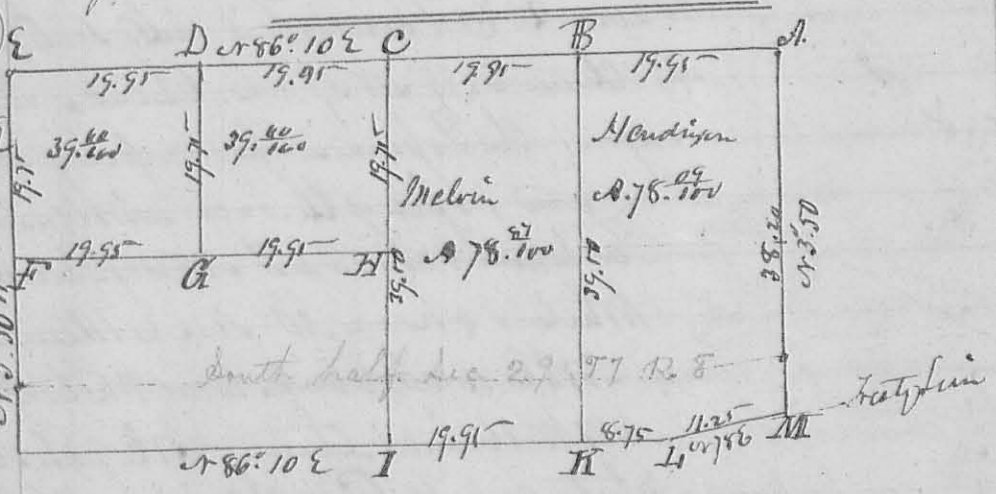 E D N 86° 10 E C B A.
19.95 19.95 19.95 19.95
39.40/100 39.40/100 Hendrixson
19.75 19.75 19.75 Melvin A. 78.09/100
19.95 19.95
F G H A 78.87/100
39.50 39.50 38.20 N. 3° 50
South half Sec 29. T7 R 8
Treaty Line
19.95 8.75 11.25
N 86° 10 E I K L N 786 M